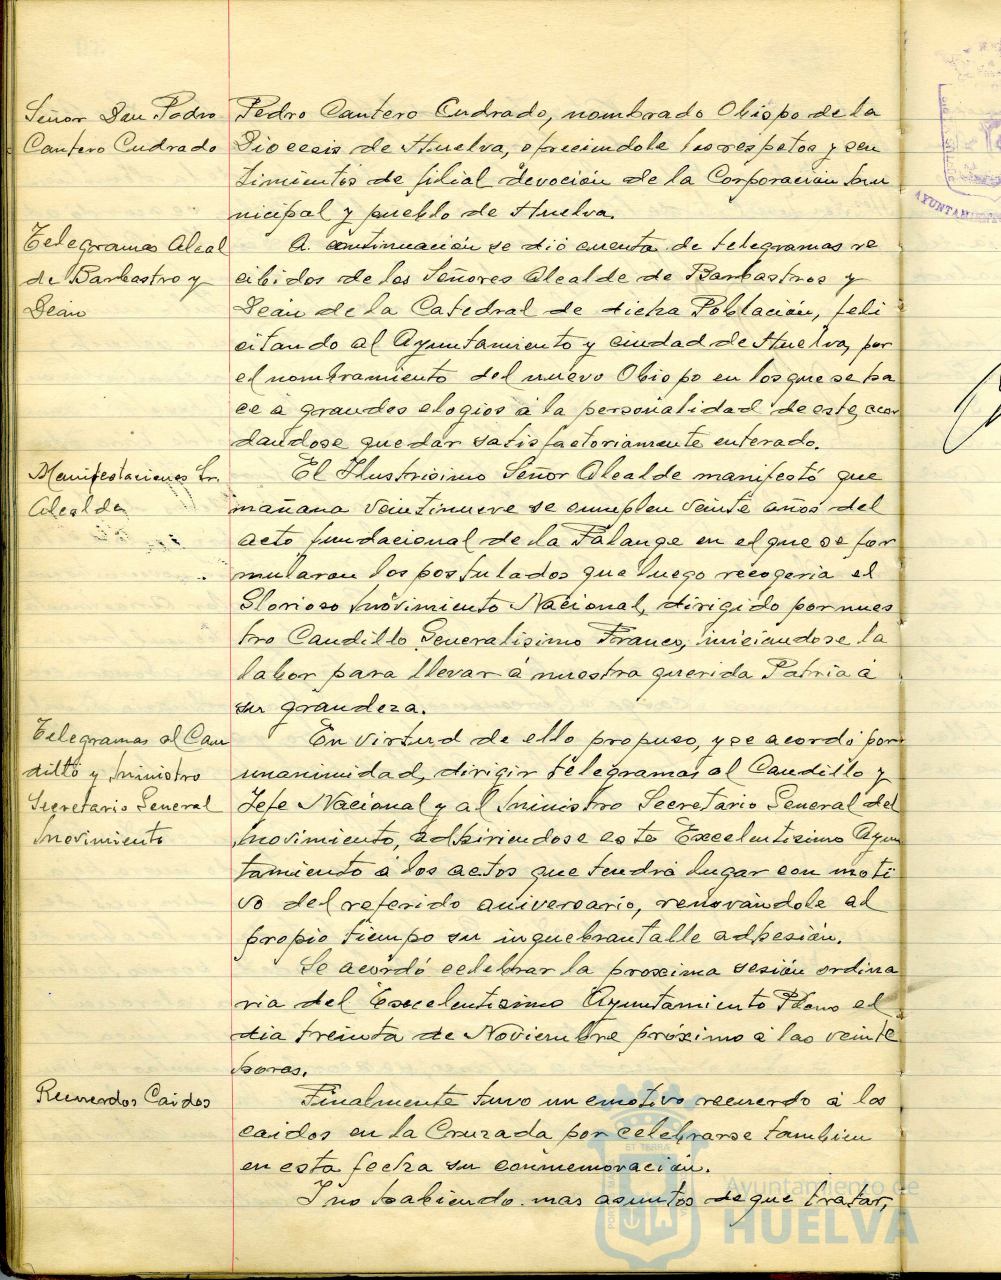 Señor Don Pedro
Cantero Cudrado
Pedro Cantero Cudrado, nombrado Obispo de la
Diocesis de Huelva, ofreciendole los respetos y sen
timientos de filial devoción de la Corporación Mu
nicipal y pueblo de Huelva.
Telegramas Alcal
de Barbastro y
Dean
A continuación se dió cuenta de telegramas re
cibidos de los Señores Alcalde de Barbastros y
Deán de la Catedral de dicha Población, feli
citando al Ayuntamiento y ciudad de Huelva, por
el nombramiento del nuevo Obispo en los que se ha
ce á grandes elogios á la personalidad de este, acor
dandose quedar satisfactoriamente enterado.
Manifestaciones Sr.
Alcalde
El Ilustrisimo Señor Alcalde manifestó que
mañana veintinueve se cumplen veinte años del
acto fundacional de la Falange en el que se for
mularan los postulados que luego recogeria el
Glorioso Movimiento Nacional, dirigido por nues
tro Caudillo Generalisimo Franco, iniciandose la
labor para llevar á nuestra querida Patria á
su grandeza.
Telegramas al Cau
dillo y Ministro
Secretario General
Movimiento
En virtud de ello propuso, y se acordó por
unanimidad, dirigir telegramas al Caudillo y
Jefe Nacional y al Ministro Secretario General del
Movimiento, adhiriendose este Excelentisimo Ayun
tamiento á los actos que tendrá lugar con moti
vo del referido aniversario, renovándole al
propio tiempo su inquebrantalle adhesión.
Se acordó celebrar la proxima sesión ordina
ria del Excelentisimo Ayuntamiento Pleno el
dia treinta de Noviembre próximo á las veinte
horas.
Recuerdos Caidos
Finalmente tuvo un emotivo recuerdo á los
caidos en la Cruzada por celebrarse tambien
en esta fecha su conmemoración.
I no habiendo mas asuntos de que tratar,
AYUNTAMIENTO
Ayuntamiento de
HUELVA